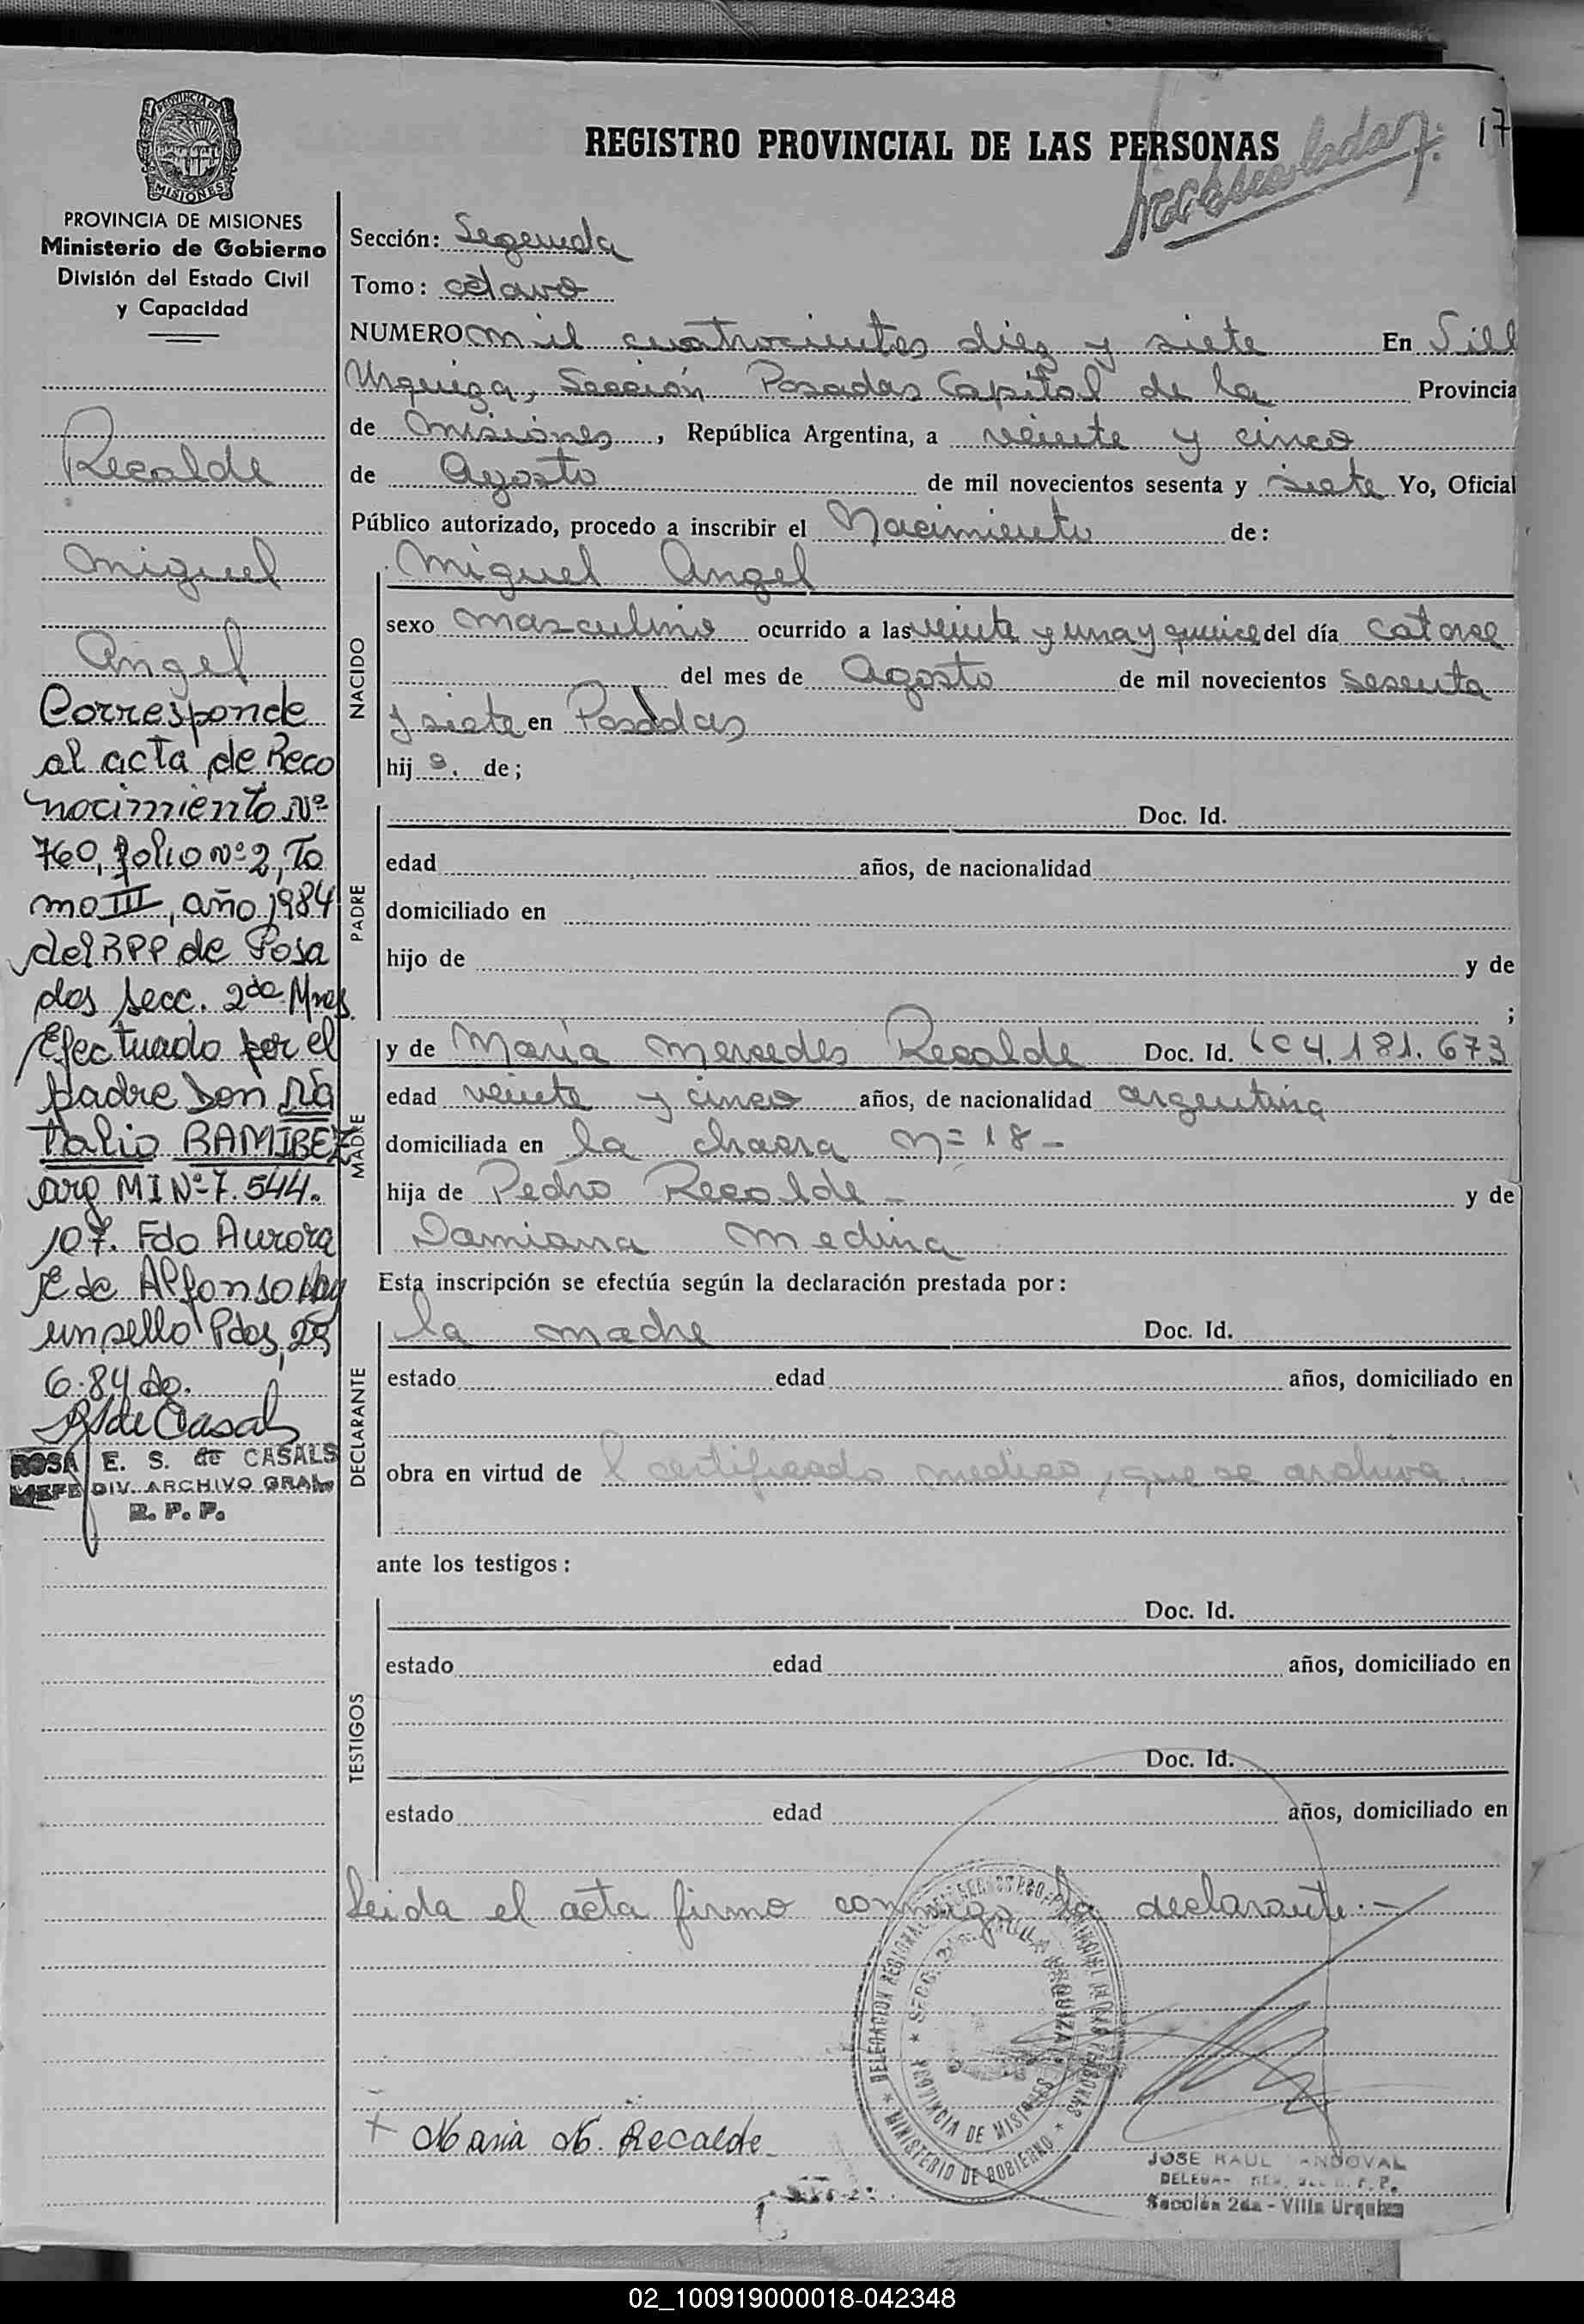 PROVINCIA DE
MISIONES
PROVINCIA DE MISIONES
Ministerio de Gobierno
División del Estado Civil
y Capacidad
Recalde
Miguel
Angel
Corresponde
al acta de Reco
nocimiento Nº
760, folio Nº 2, To
mo III, año 1984
del RPP de Posa
das secc. 2da Mnes.
Efectuado por el
padre Don Na
talio RAMIREZ
arg MI Nº 7.544.
107. Fdo Aurora
de Alfonso Hay
un sello Pdas, 25
6.84 do.
R S de Casals
ROSA E. S. de CASALS
JEFE DIV. ARCHIVO GRAL
R. P. P.
REGISTRO PROVINCIAL DE LAS PERSONAS
17
Sección: Segunda
Tomo: octavo
NUMERO mil cuatrocientos diez y siete En Vill
Urquiza, Sección Posadas Capital de la Provincia
de Misiones, República Argentina, a veinte y cinco
de Agosto de mil novecientos sesenta y siete Yo, Oficial
Público autorizado, procedo a inscribir el Nacimiento de:
NACIDO
Miguel Angel
sexo masculino ocurrido a las veinte y una y quince del día catorse
del mes de Agosto de mil novecientos sesenta
y siete en Posadas
hij o. de;
PADRE
Doc. Id.
edad años, de nacionalidad
domiciliado en
hijo de y de
;
MADRE
y de María Mercedes Recalde Doc. Id. LC 4.181.673
edad veinte y cinco años, de nacionalidad argentina
domiciliada en la chacra Nº 18 -
hija de Pedro Recalde - y de
Damiana Medina
Esta inscripción se efectúa según la declaración prestada por:
DECLARANTE
la madre Doc. Id.
estado edad años, domiciliado en
obra en virtud de l certificado medico, que se archiva.
ante los testigos:
TESTIGOS
Doc. Id.
estado edad años, domiciliado en
Doc. Id.
estado edad años, domiciliado en
Leida el acta firmo conmigo la declarante.-
DELEGACION REGIONAL DEL REGISTRO PROVINCIAL DE LAS PERSONAS
MINISTERIO DE GOBIERNO
SECC. 2da. VILLA URQUIZA
PROVINCIA DE MISIONES
x Maria M. Recalde
JOSE RAUL SANDOVAL
Sección 2da - Villa Urquiza
02_100919000018-042348